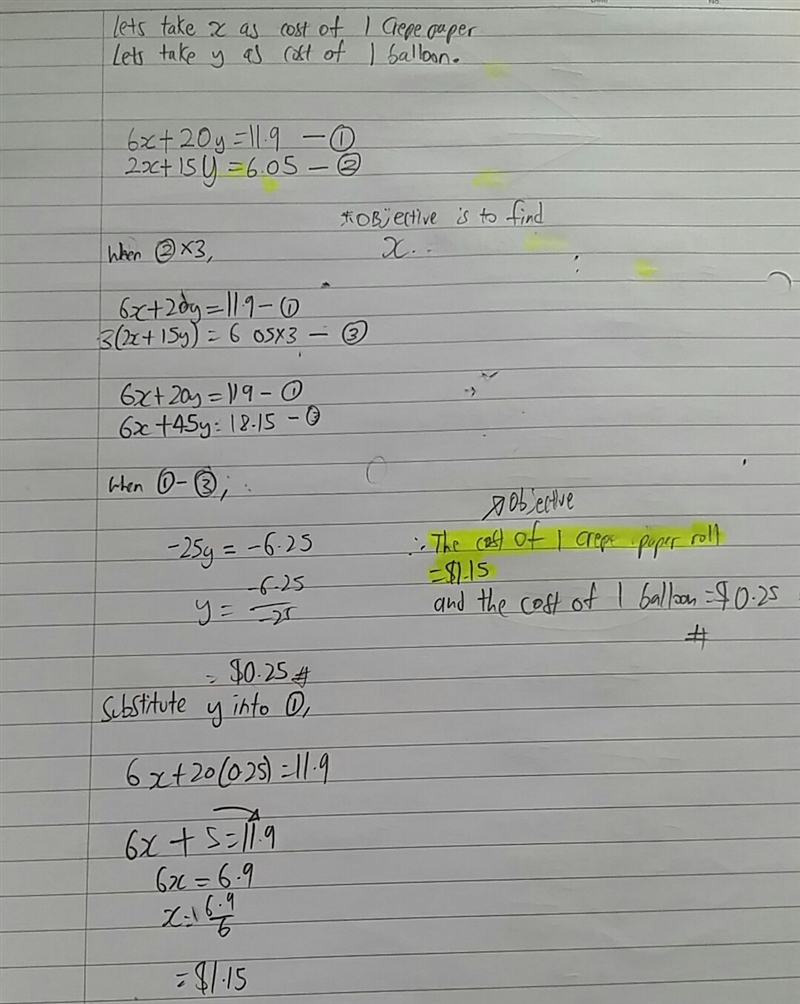 Lets take x as cost of 1 crepe paper
Lets take y as cost of 1 balloon.
6x+20y=11.9 — ①
2x+15y=6.05 — ②
*Objective is to find
x..
When ②×3,
6x+20y=11.9 – ①
3(2x+15y)=6 05×3 — ③
6x+20y=119 – ①
6x+45y=18.15 – ③
When ①–③,
-25y = -6.25
y = -6.25/-25
= $0.25 #
↗Objective
∴ The cost of 1 crepe paper roll
=$1.15
and the cost of 1 balloon=$0.25
#
Substitute y into ①,
6x+20(0.25)=11.9
6x+5=11.9
6x=6.9
x=6.9/6
=$1.15